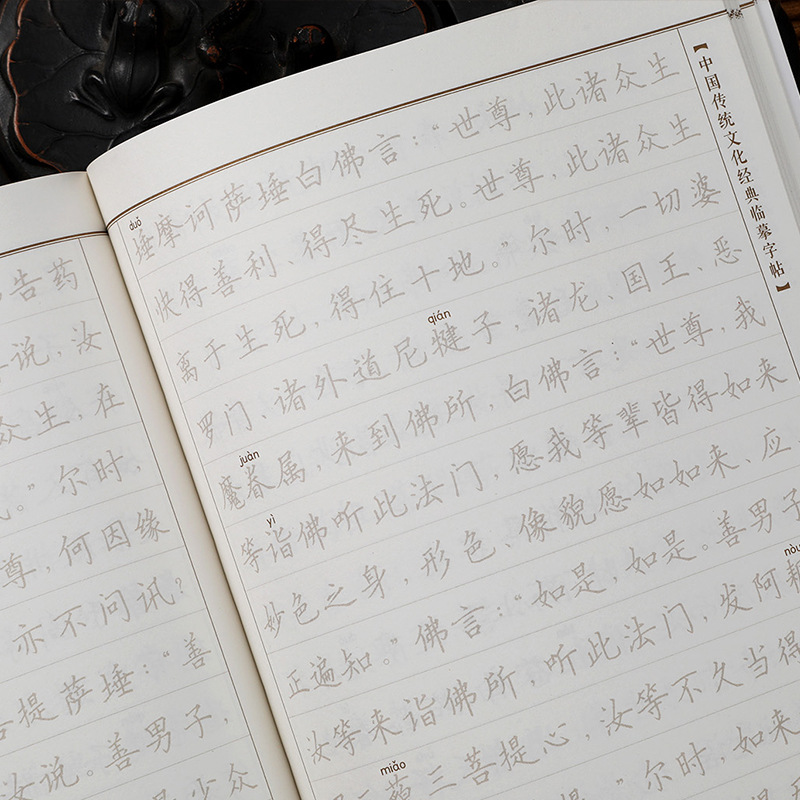 告药
说，汝
众生，在
。”尔时，
尊，何因缘
亦不问讯？
提萨埵：“善
汝说。善男子，
少众
【中国传统文化经典临摹字帖】
duǒ
埵摩诃萨埵白佛言：“世尊，此诸众生
快得善利、得尽生死。世尊，此诸众生
离于生死，得住十地。”尔时，一切婆
qián
罗门、诸外道尼犍子，诸龙、国王、恶
juàn
魔眷属，来到佛所，白佛言：“世尊，我
yì
等诣佛听此法门，愿我等辈皆得如来
妙色之身，形色、像貌愿如如来、应、
正遍知。”佛言：“如是，如是。善男子
nòu
汝等来诣佛所，听此法门，发阿耨
miǎo
三藐三菩提心，汝等不久当得
提。”尔时，如来